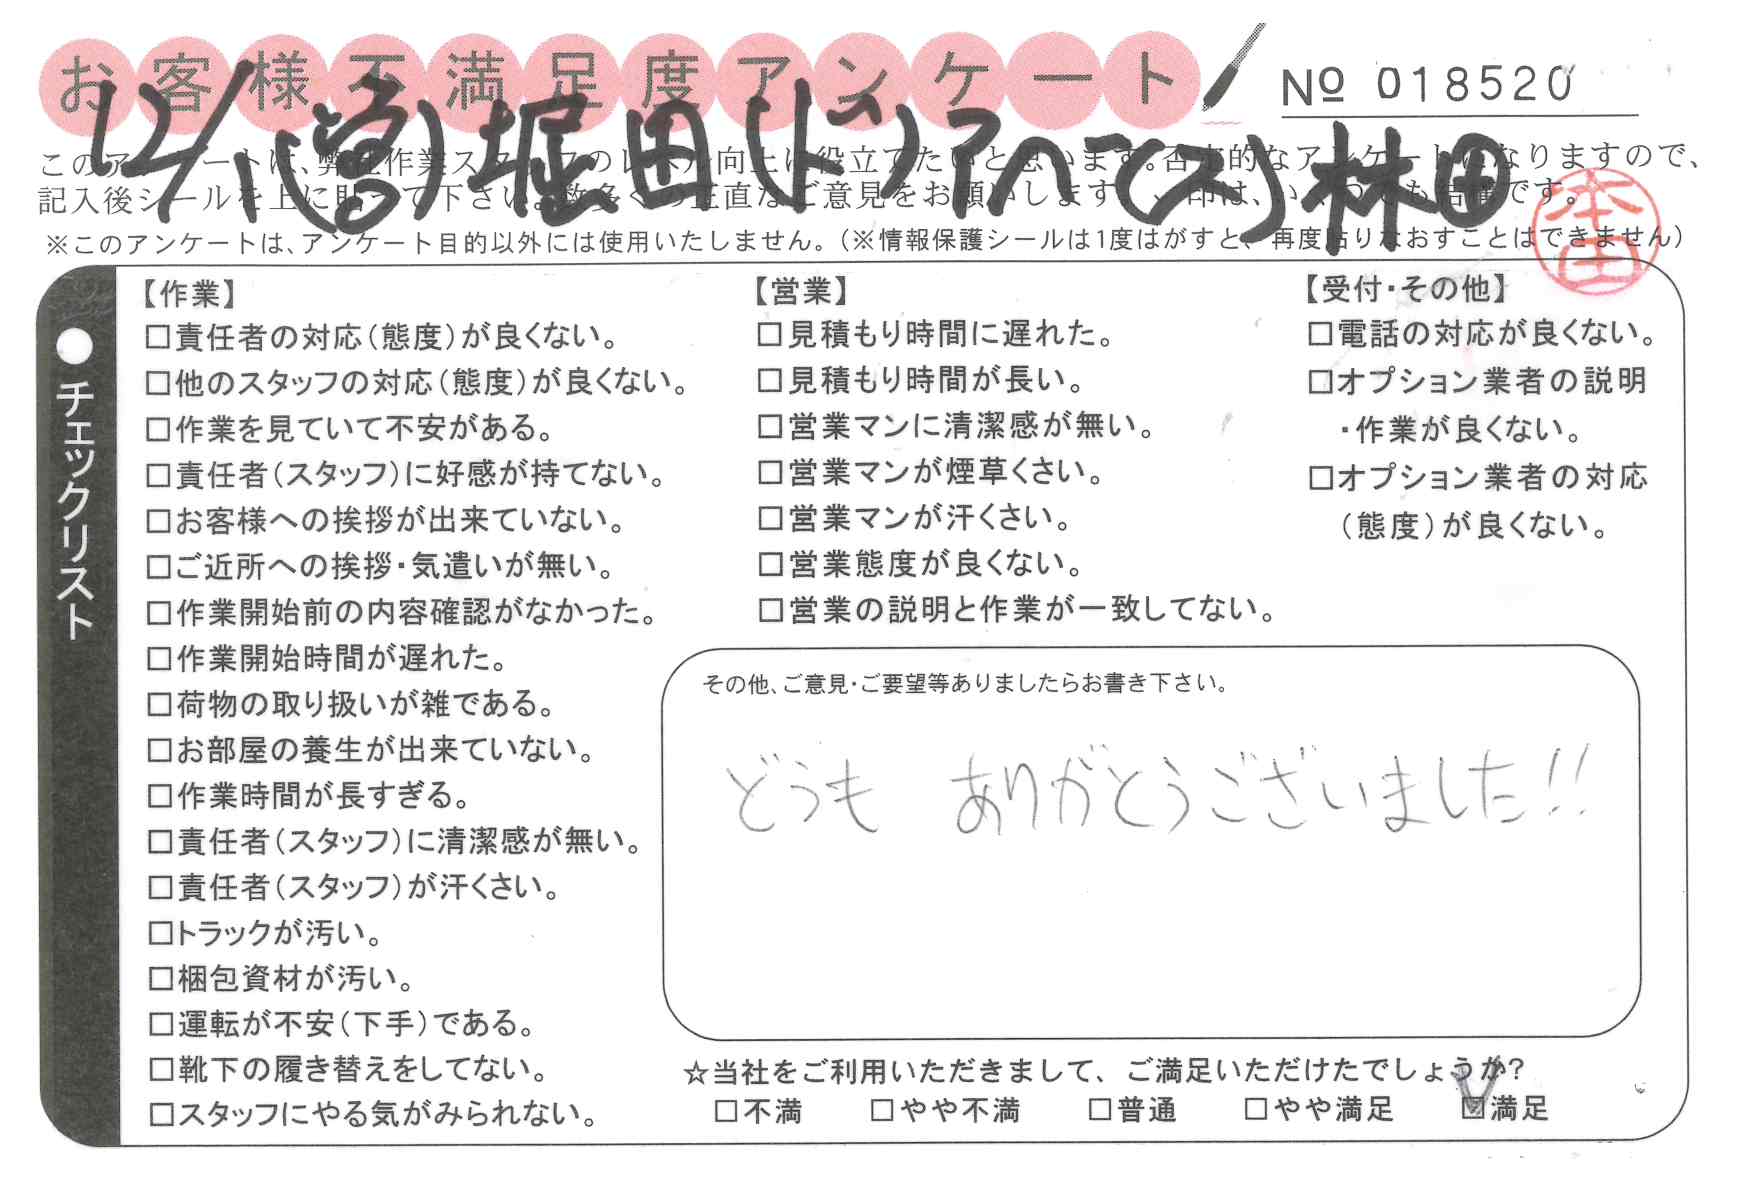 お客様不満足度アンケート
№ 018520
12/1(営)堀田(ド)アヘて(ス)林田
このアンケートは、弊社作業スタッフのレベル向上に役立てたいと思います。否定的なアンケートになりますので、
記入後シールを上に貼って下さい。数多くの正直なご意見をお願いします。✓印は、いくつでも結構です。
※このアンケートは、アンケート目的以外には使用いたしません。(※情報保護シールは1度はがすと、再度貼りなおすことはできません)
本田
●チェックリスト
【作業】
□責任者の対応(態度)が良くない。
□他のスタッフの対応(態度)が良くない。
□作業を見ていて不安がある。
□責任者(スタッフ)に好感が持てない。
□お客様への挨拶が出来ていない。
□ご近所への挨拶・気遣いが無い。
□作業開始前の内容確認がなかった。
□作業開始時間が遅れた。
□荷物の取り扱いが雑である。
□お部屋の養生が出来ていない。
□作業時間が長すぎる。
□責任者(スタッフ)に清潔感が無い。
□責任者(スタッフ)が汗くさい。
□トラックが汚い。
□梱包資材が汚い。
□運転が不安(下手)である。
□靴下の履き替えをしてない。
□スタッフにやる気がみられない。
【営業】
□見積もり時間に遅れた。
□見積もり時間が長い。
□営業マンに清潔感が無い。
□営業マンが煙草くさい。
□営業マンが汗くさい。
□営業態度が良くない。
□営業の説明と作業が一致してない。
【受付・その他】
□電話の対応が良くない。
□オプション業者の説明
・作業が良くない。
□オプション業者の対応
(態度)が良くない。
その他、ご意見・ご要望等ありましたらお書き下さい。
どうも ありがとうございました!!
☆当社をご利用いただきまして、ご満足いただけたでしょうか?
□不満 □やや不満 □普通 □やや満足 ☑満足